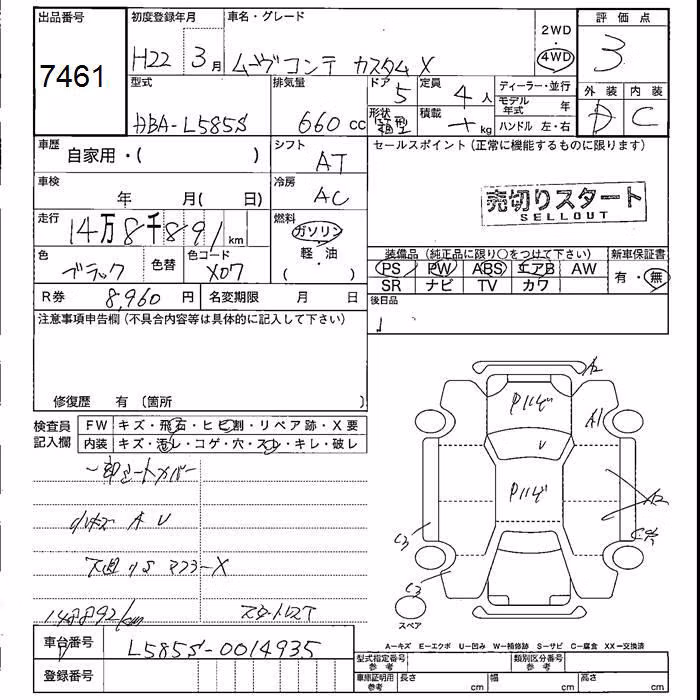 出品番号
7461
初度登録年月
H22 3月
車名・グレード
ムーヴコンテ カスタム X
2WD
・
4WD
評価点
3
型式
DBA-L585S
排気量
660 cc
ドア
5
定員
4人
形状
箱型
積載
kg
ディーラー・並行
モデル年式 年
ハンドル 左・右
外装
D
内装
C
車歴
自家用・( )
シフト
AT
車検
年 月( 日)
冷房
AC
走行
14万8千891 km
燃料
ガソリン
・
軽・油
( )
色
ブラック
色替
色コード
X07
R券
8,960円
名変期限 月 日
セールスポイント(正常に機能するものに限ります)
売切りスタート
SELLOUT
装備品(純正品に限り○をつけて下さい)
PS PW ABS エアB AW
SR ナビ TV カワ
新車保証書
有・無
後日品
注意事項申告欄(不具合内容等は具体的に記入して下さい)
修復歴 有(箇所 )
検査員記入欄
FW キズ・飛石・ヒビ割・リペア跡・X要
内装 キズ・汚レ・コゲ・穴・スレ・キレ・破レ
小キズ A U
下廻りS マフラーX
148892km
スタートレスT
A2
A1
U
A2
C3
C3
スペア
車台番号
L585S-0014935
登録番号
A=キズ E=エクボ U=凹み W=補修跡 S=サビ C=腐食 XX=交換済
型式指定番号 参考
類別区分番号 参考
車庫証明用 参考
長さ cm
幅 cm
高さ cm